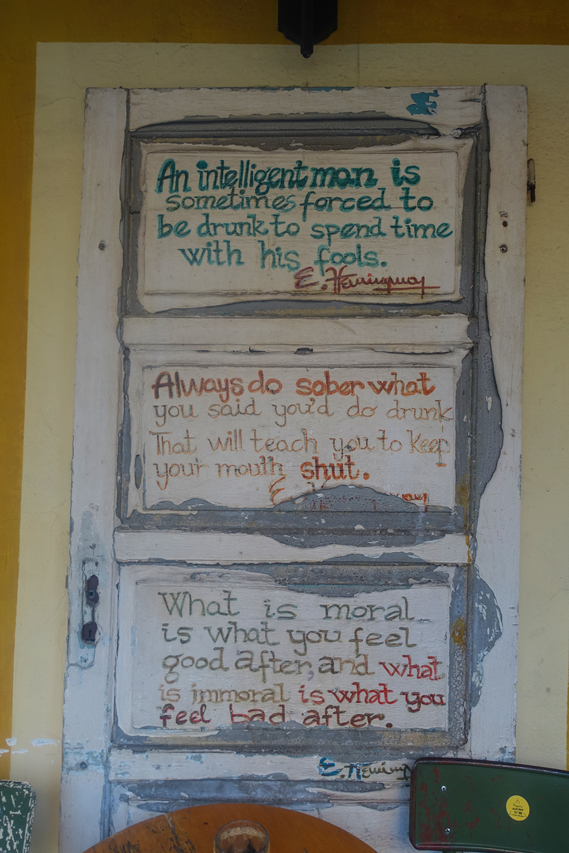 An intelligent man is
sometimes forced to
be drunk to spend time
with his fools.
E. Hemingway
Always do sober what
you said you'd do drunk
That will teach you to keep
your mouth shut.
E.
What is moral
is what you feel
good after, and what
is immoral is what you
feel bad after.
E. Heming